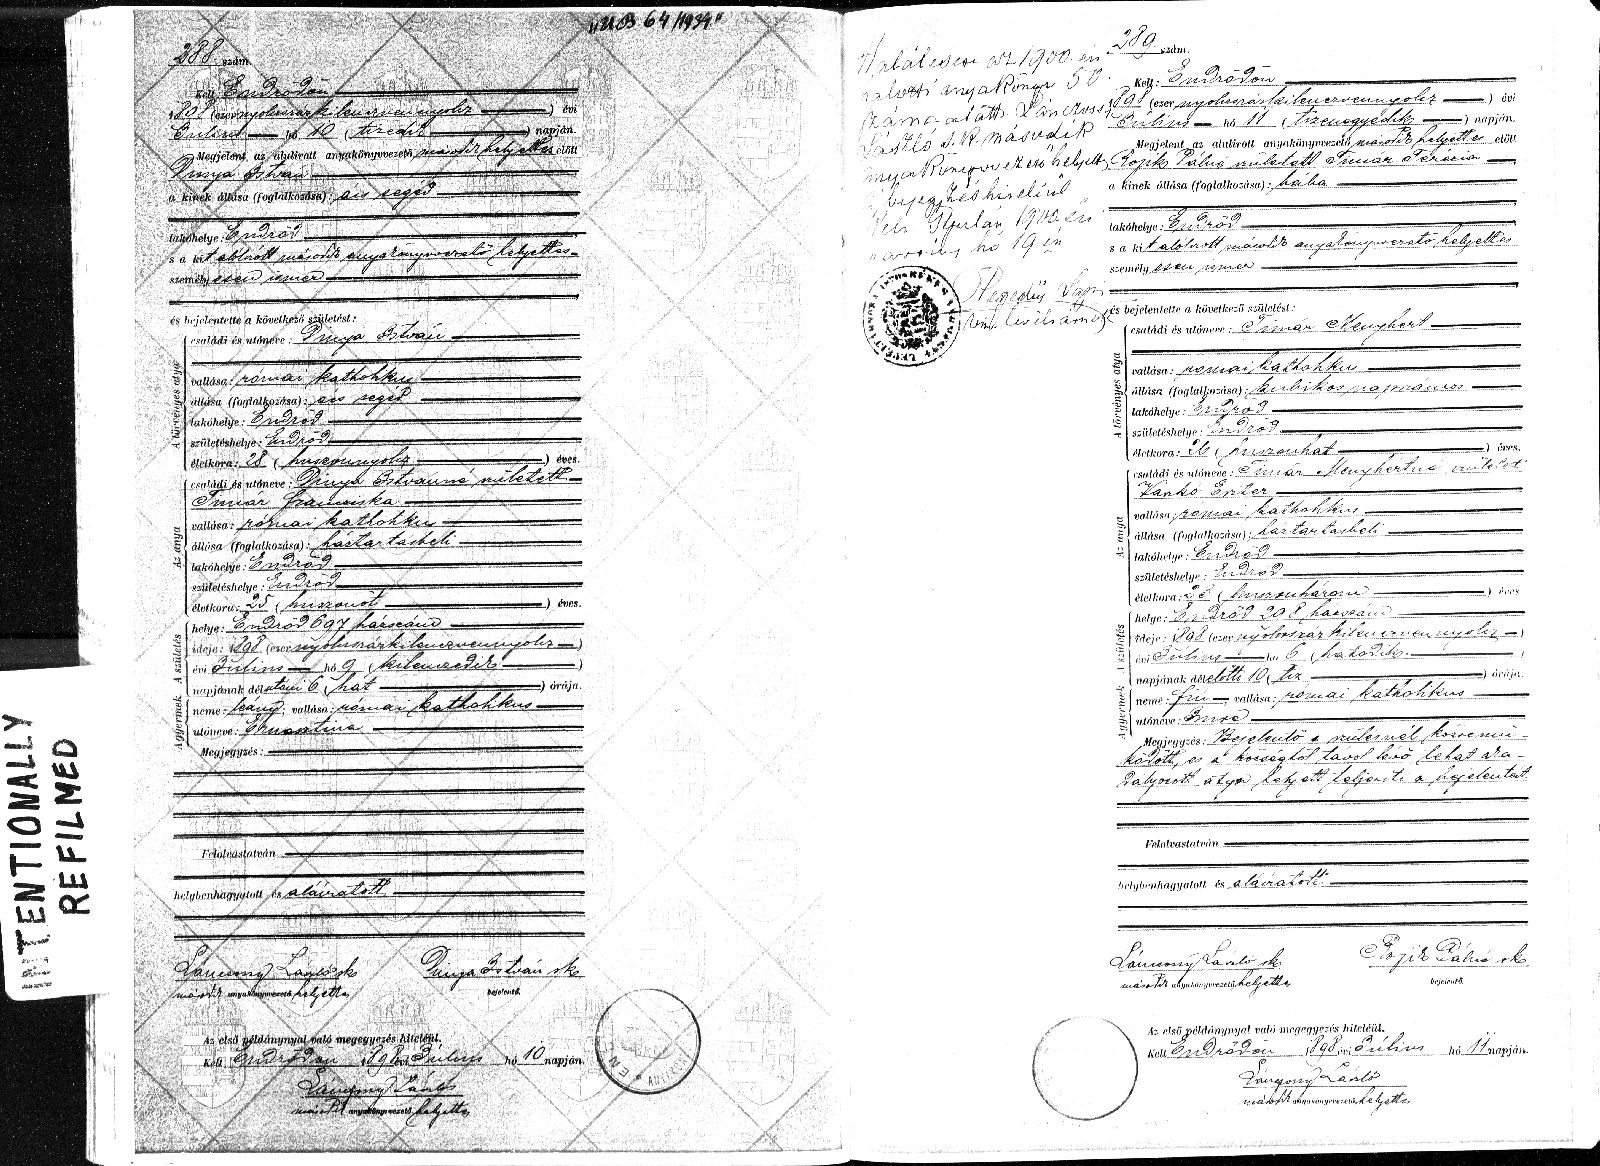 "U.B 64/1934"
288 szám.
Kelt: Endrődön
1898 (ezernyolcszázkilencvennyolcz) évi
Július hó 10 (tizedik) napján.
Megjelent az alulirott anyakönyvvezető második helyettes előtt
Dinya István
a kinek állása (foglalkozása): ács segéd
lakóhelye: Endrőd
s a kit alólirott második anyakönyvvezető helyettes
személyesen ismer
és bejelentette a következő születést:
A törvényes atya
családi és utóneve: Dinya István
vallása: római katholikus
állása (foglalkozása): ács segéd
lakóhelye: Endrőd
születéshelye: Endrőd
életkora: 28 (huszonnyolcz) éves.
Az anya
családi és utóneve: Dinya Istvánné született
Timár Franciska
vallása: római katholikus
állása (foglalkozása): háztartásbeli
lakóhelye: Endrőd
születéshelye: Endrőd
életkora: 25 (huszonöt) éves.
A születés
helye: Endrőd 697 házszám
ideje: 1898 (ezernyolcszázkilencvennyolcz)
évi Július hó 9 (kilenczedik)
napjának délutáni 6 (hat) órája.
A gyermek
neme: leány; vallása: római katholikus
utóneve: Krisztina
Megjegyzés:
Felolvastatván
helybenhagyatott és aláiratott
Lánczony László sk Dinya István sk
második anyakönyvvezető helyettes bejelentő.
Az első példánynyal való megegyezés hiteléül.
Kelt Endrődön 1898 évi Július hó 10 napján.
Lánczony László
második anyakönyvvezető helyettes
Halálesete az 1900 évi
halotti anyakönyv 50
szám alatt. Lánczony
László s.k. második
anyakönyvvezető helyett.
bejegyzés hiteléül
Kelt Gyulán 1900 évi
hó 19 én
Hegedűs
289 szám.
Kelt: Endrődön
1898 (ezernyolcszázkilencvennyolcz) évi
Július hó 11 (tizenegyedik) napján.
Megjelent az alulirott anyakönyvvezető második helyettes előtt
Rojik Pálné született Timár Terézia
a kinek állása (foglalkozása): bába
lakóhelye: Endrőd
s a kit alólirott második anyakönyvvezető helyettes
személyesen ismer
és bejelentette a következő születést:
A törvényes atya
családi és utóneve: Timár Menyhért
vallása: római katholikus
állása (foglalkozása): kubikos napszámos
lakóhelye: Endrőd
születéshelye: Endrőd
életkora: 26 (huszonhat) éves.
Az anya
családi és utóneve: Timár Menyhértné született
Vankó Eszter
vallása: római katholikus
állása (foglalkozása): háztartásbeli
lakóhelye: Endrőd
születéshelye: Endrőd
életkora: 23 (huszonhárom) éves
A születés
helye: Endrőd 208 házszám
ideje: 1898 (ezernyolcszázkilencvennyolcz)
évi Július hó 6 (hatodik)
napjának délelőtti 10 (tiz) órája.
A gyermek
neme: fiu, vallása: római katholikus
utóneve: Imre
Megjegyzés: Bejelentő a szülésnél közremű-
ködött, és a községtől távol levő tehát aka-
dályozott atya helyett teljesiti a bejelentést.
Felolvastatván
helybenhagyatott és aláiratott
Lánczony László sk Rojik Pálné sk
második anyakönyvvezető helyettes bejelentő.
Az első példánynyal való megegyezés hiteléül.
Kelt Endrődön 1898 évi Július hó 11 napján.
Lánczony László
második anyakönyvvezető helyettes
TENTIONALLY
REFILMED